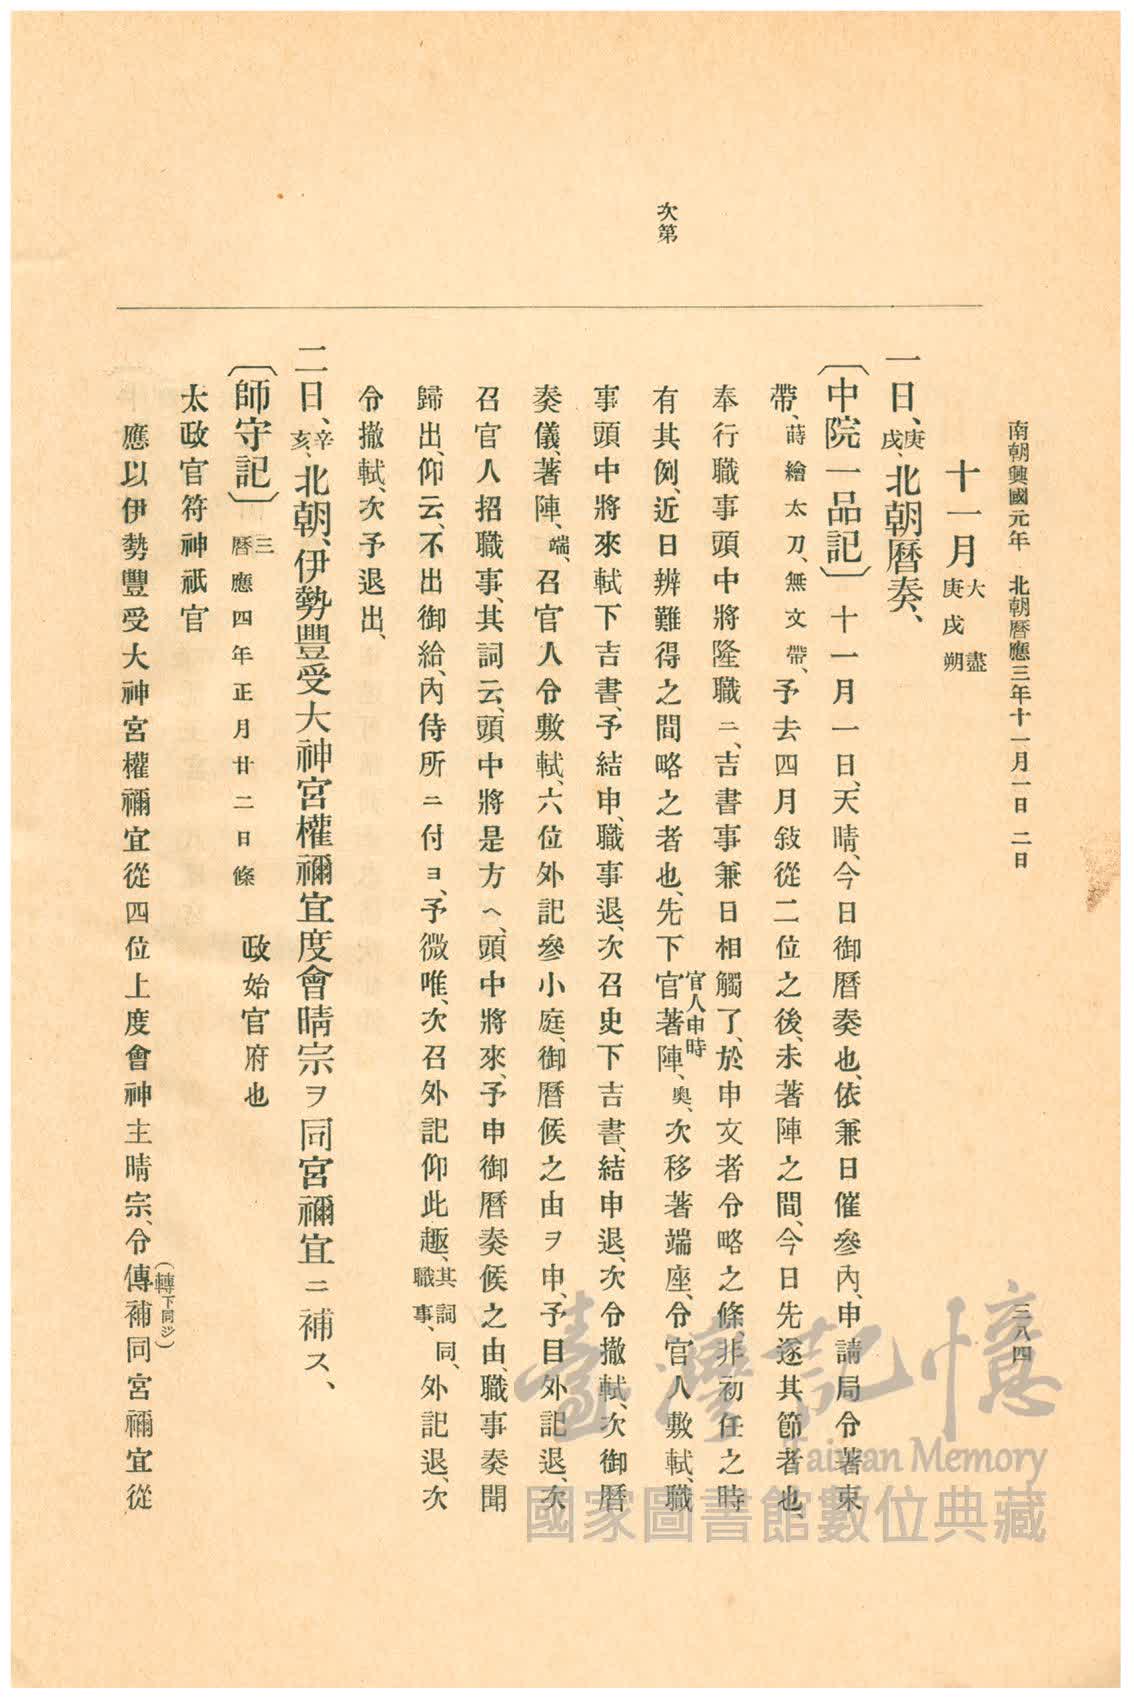 南朝興國元年 北朝曆應三年十一月一日 二日
三八四
次第
十一月 大盡 庚戌朔
一日、庚戌、北朝曆奏、
〔中院一品記〕十一月一日、天晴、今日御曆奏也、依兼日催參內、申請局令著束
帶、蒔繪太刀、無文帶、予去四月敍從二位之後、未著陣之間、今日先遂其節者也、
奉行職事頭中將隆職ニ、吉書事兼日相觸了、於申文者令略之條、非初任之時
有其例、近日辨難得之間略之者也、先下官著陣、奧、次移著端座、令官人敷軾、職
官人申時
事頭中將來軾下吉書、予結申、職事退、次召史下吉書、結申退、次令撤軾、次御曆
奏儀、著陣、端、召官人令敷軾、六位外記參小庭、御曆候之由ヲ申、予目外記退、次
召官人招職事、其詞云、頭中將是方へ、頭中將來、予申御曆奏候之由、職事奏聞
歸出、仰云、不出御給、內侍所ニ付ヨ、予微唯、次召外記仰此趣、其詞同職事、外記退、次
令撤軾、次予退出、
二日、辛亥、北朝、伊勢豐受大神宮權禰宜度會晴宗ヲ同宮禰宜ニ補ス、
〔師守記〕三 曆應四年正月廿二日條 政始官府也
太政官符神祇官
應以伊勢豐受大神宮權禰宜從四位上度會神主晴宗、令傳補同宮禰宜從
(轉下同ジ)
臺灣記憶
Taiwan Memory
國家圖書館數位典藏